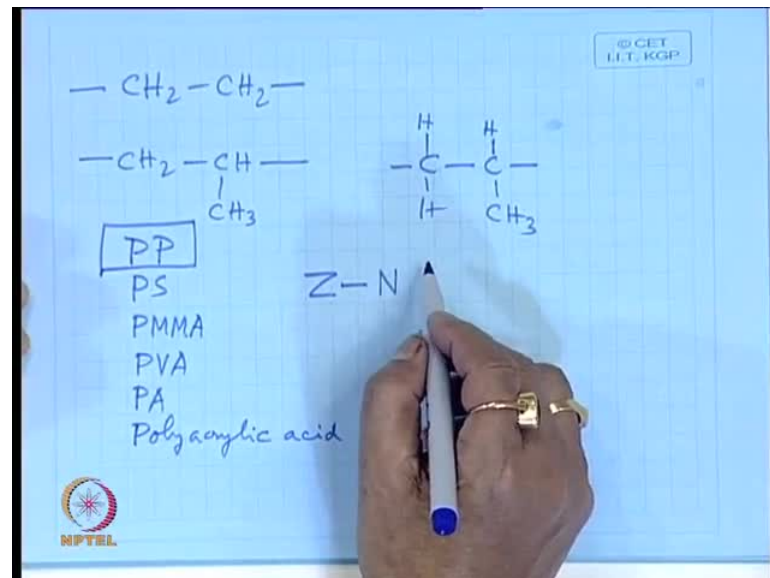 © CET
I.I.T. KGP
— CH₂ — CH₂ —
— CH₂ — CH —
|
CH₃
H H
| |
— C — C —
| |
H CH₃
PP
PS
PMMA
PVA
PA
Polyacrylic acid
Z — N
NPTEL